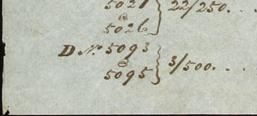 5021 } 22/250. . .
@
5026
D No 5093 } 3/500. . .
@
5095